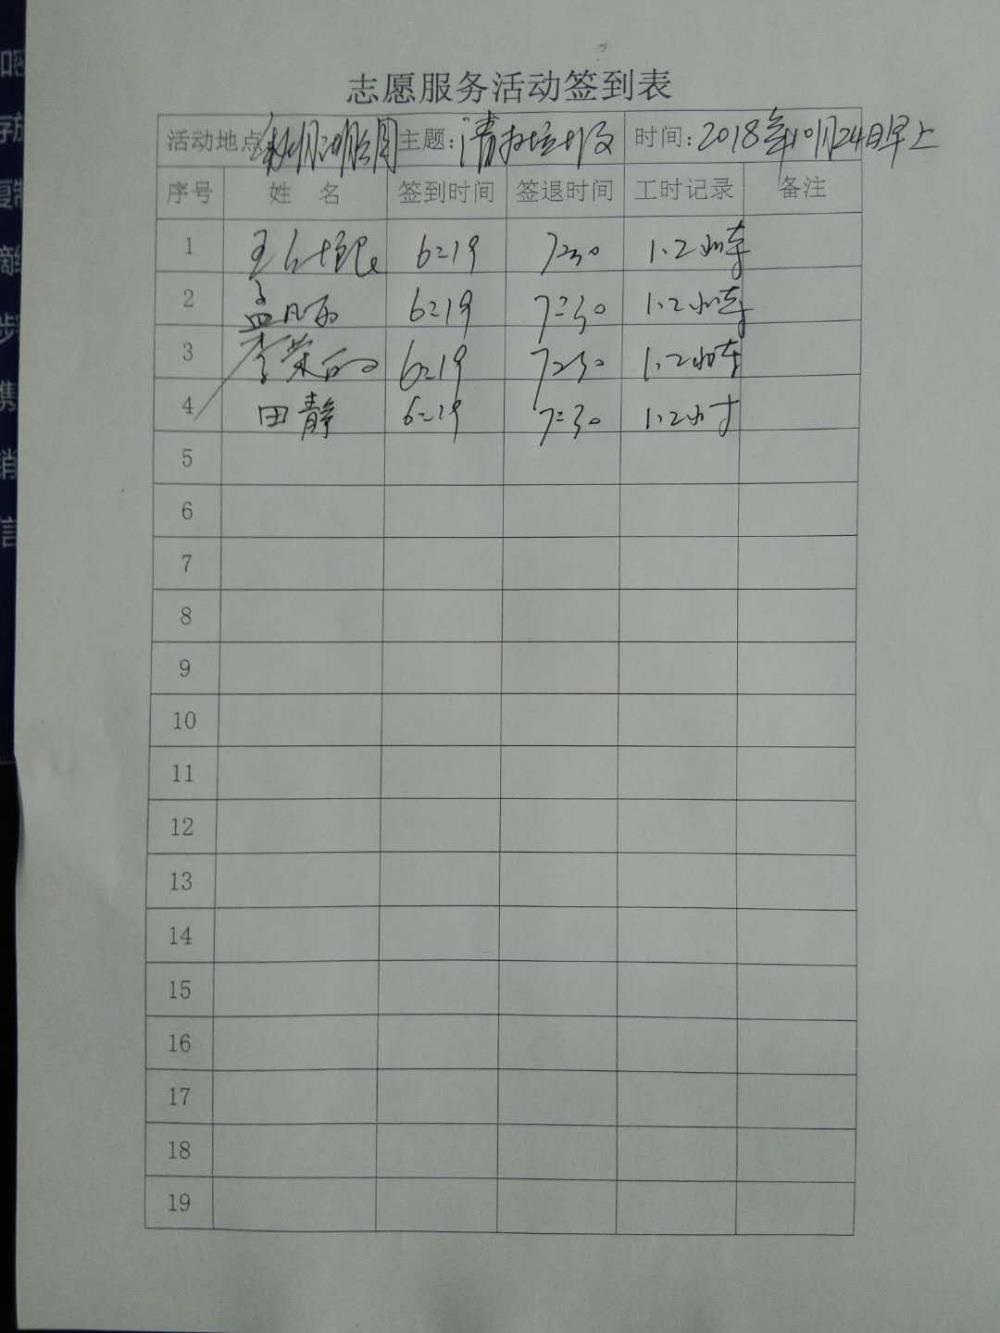 志愿服务活动签到表
活动地点 主题: 清扫垃圾 时间: 2018年10月24日早上
序号 姓 名 签到时间 签退时间 工时记录 备注
1 王 6:19 7:30 1.2小时
2 孟凡 6:19 7:30 1.2小时
3 李荣 6:19 7:30 1.2小时
4 田静 6:19 7:30 1.2小寸
5
6
7
8
9
10
11
12
13
14
15
16
17
18
19